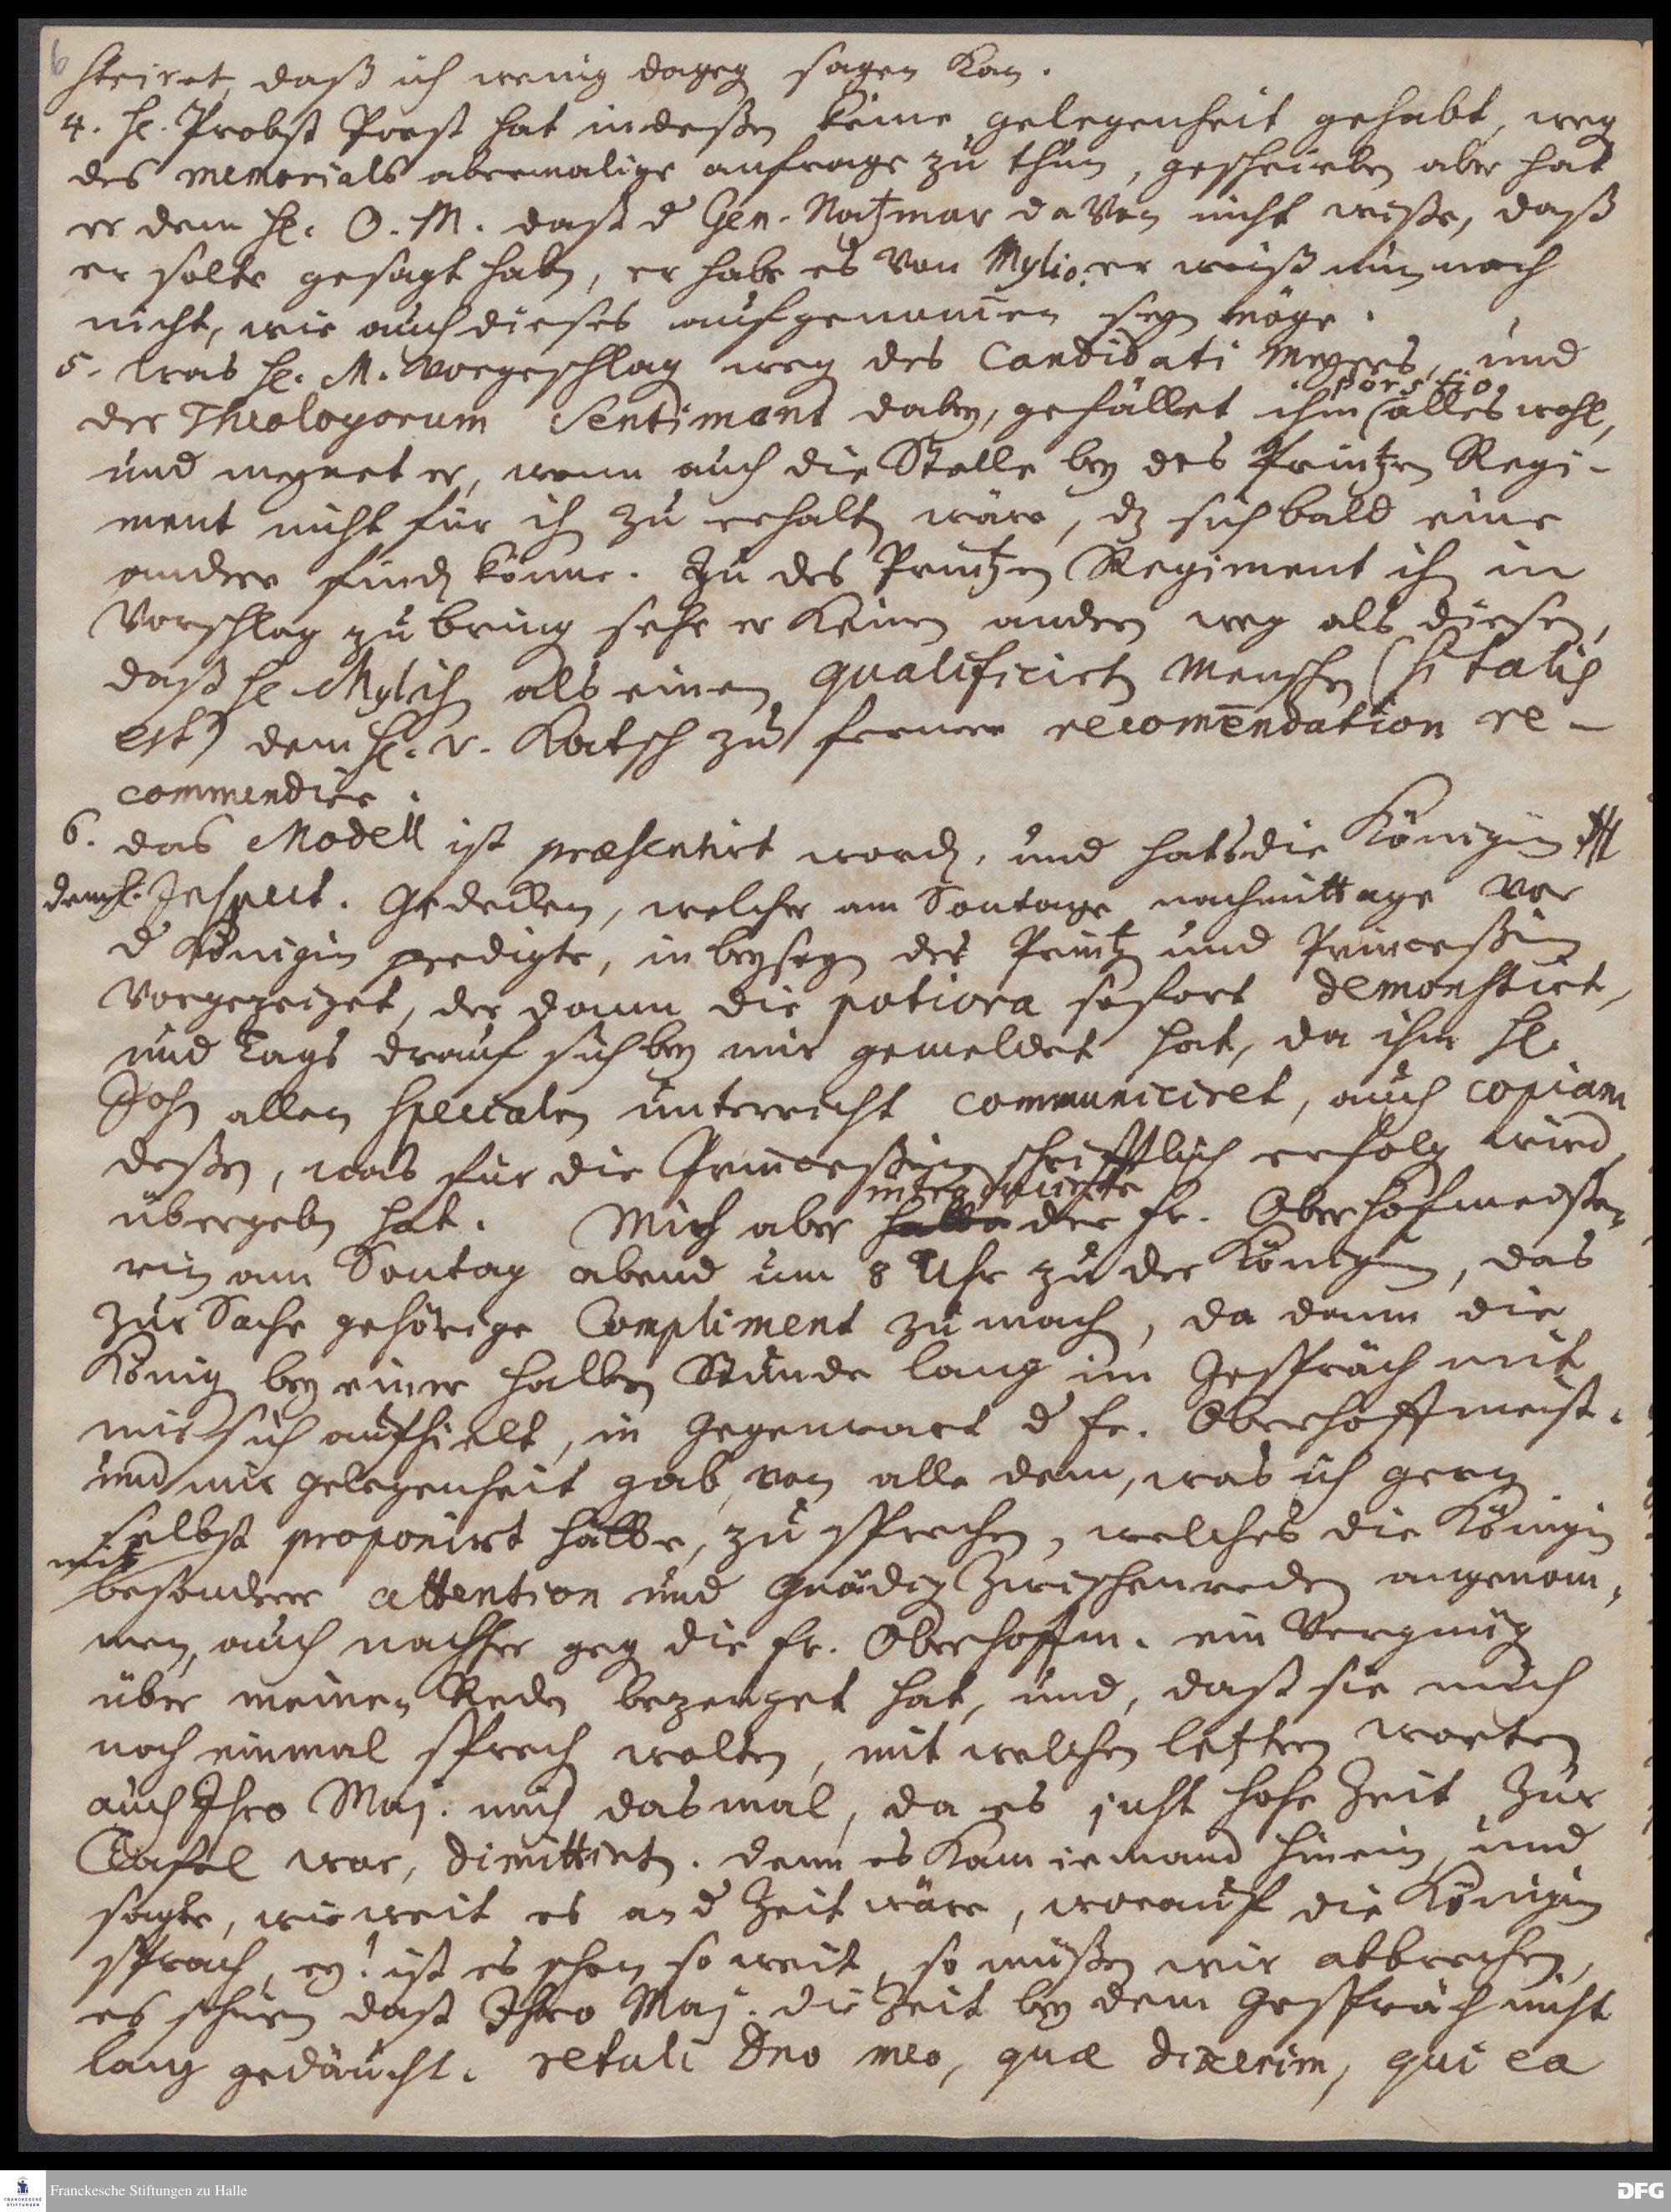 6
streiret, daß ich wenig dageg sagen kan.
4. H. Probst Porst hat indeßen keine gelegenheit gehabt, weg
des memorials abermalige anfrage zu thun, geschrieben aber hat
er dem H. O. M. daß d Gen. Natzmar davon nicht wiße, daß
er solte gesagt habn, er habe es von Mylio. er weiß nun noch
nicht, wie auch dieses aufgenom̄en seyn möge.
5. was H. M. vorgeschlag weg des Candidati Meyers, und
der Theologorum Sentiment dabey, gefället ihm (Porstio) alles wohl,
und meynet er, wenn auch die Stelle bey des Printzen Regi-
ment nicht für ih zu erhaltn wäre, dz sich bald eine
andere find könne. Zu des Printzen Regiment ih in
Vorschlag zu bring sehe er keinen andern weg als diesen,
daß H. Mylich als einen qualificirtn Menschen (si talis
est) dem H. v. Katsch zu ferner recom̄endation re-
commendire.
6. das Modell ist præsentirt word, und hats die Königin
dem H. Inspect. Gedicken, welcher am Sontage nachmittage vor
d Königin predigte, in beyseyn des Printz und Princeßin
vorgezeiget, der dann die potiora sofort demonstrirt,
und Tags drauf sich bey mir gemeldet hat, da ihm H.
Joh allen specialen unterricht communiciret, auch copiam
deßen, was für die Princeßin schrifftlich erfolg wird,
übergebn hat. Mich aber der Fr. Oberhofmeiste-
rin am Sontag abend um 8 Uhr zu der Königin, das
zur Sache gehörige Compliment zu mach, da dann die
König bey einer halben Stunde lang im Gespräch mit
mir sich aufhielt, in gegenwart d Fr. Oberhoffmeist.
und mir gelegenheit gab, von alle dem, was ich gern
selbst proponirt hätte, zu sprechen, welches die Königin
mit
besonderer attention und gnädig Zwischenreden angenom-
men, auch nachher geg die Fr. Oberhoffm. ein Vergnüg
über meinen Reden bezeuget hat, und, daß sie mich
noch einmal sprech wolten, mit welchen letzten worten
auch Ihro Maj. mich dasmal, da es just hohe Zeit zur
Tafel war, dimittirtn. denn es kam iemand hinein, und
sagte, wie weit es an d Zeit wäre, worauf die Königin
sprach, ey! ist es schon so weit, so müßen wir abbrechen,
es schien daß Ihro Maj. die Zeit bey dem Gespräch nicht
lang gedäucht. retuli Dno meo, quæ dixerim, qui ea
Franckesche Stiftungen zu Halle
FRANCKESCHE STIFTUNGEN
DFG